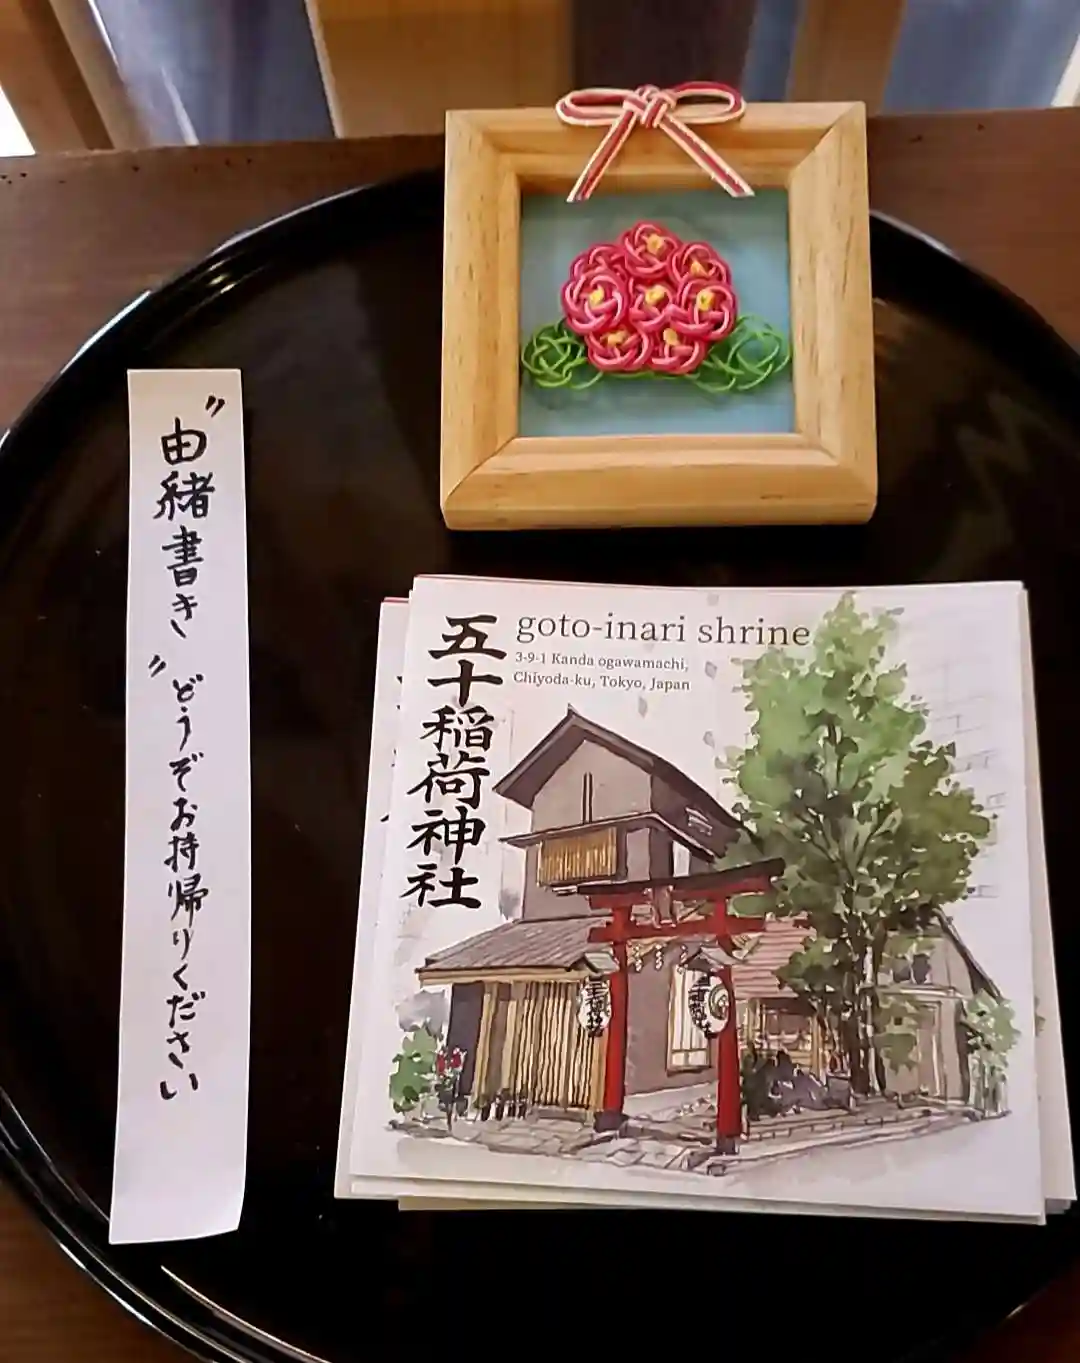 〝由緒書き〟どうぞお持帰りください
五十稲荷神社
goto-inari shrine
3-9-1 Kanda ogawamachi,
Chiyoda-ku, Tokyo, Japan